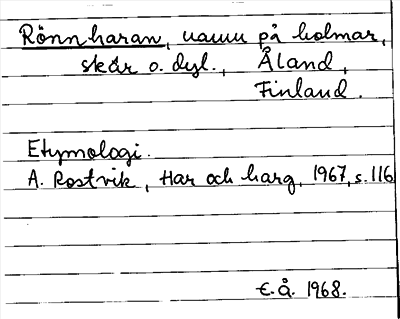 Rönnharan, namn på holmar,
skär o. dyl., Åland,
Finland.
Etymologi.
A. Rostvik, Har och harg, 1967, s. 116
E.Å. 1968.